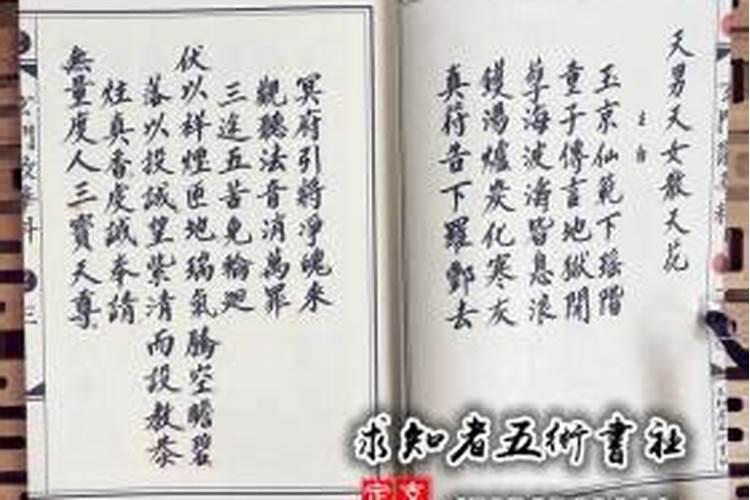 天男天女散天花
主白
玉京仙範下瑶階
童子傳言地獄開
孽海波濤皆息浪
鑊湯爐炭化寒灰
真符告下羅酆去
冥府引將淨魄來
觀聽法音消萬罪
三途五苦免輪迴
伏以祥煙匝地瑞氣騰空瞻碧
落以投誠望紫清而設教恭
炷真香虔誠奉請
無量度人三寶天尊
求知者五術書社